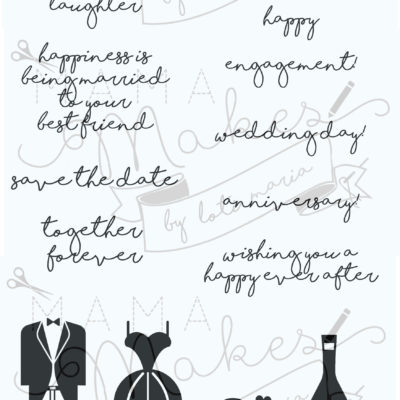 laughter
happiness is
being married
to your
best friend
save the date
together
forever
happy
engagement!
wedding day!
anniversary!
wishing you a
happy ever after
MAMA
Makes
by lola maria
MAMA
Makes